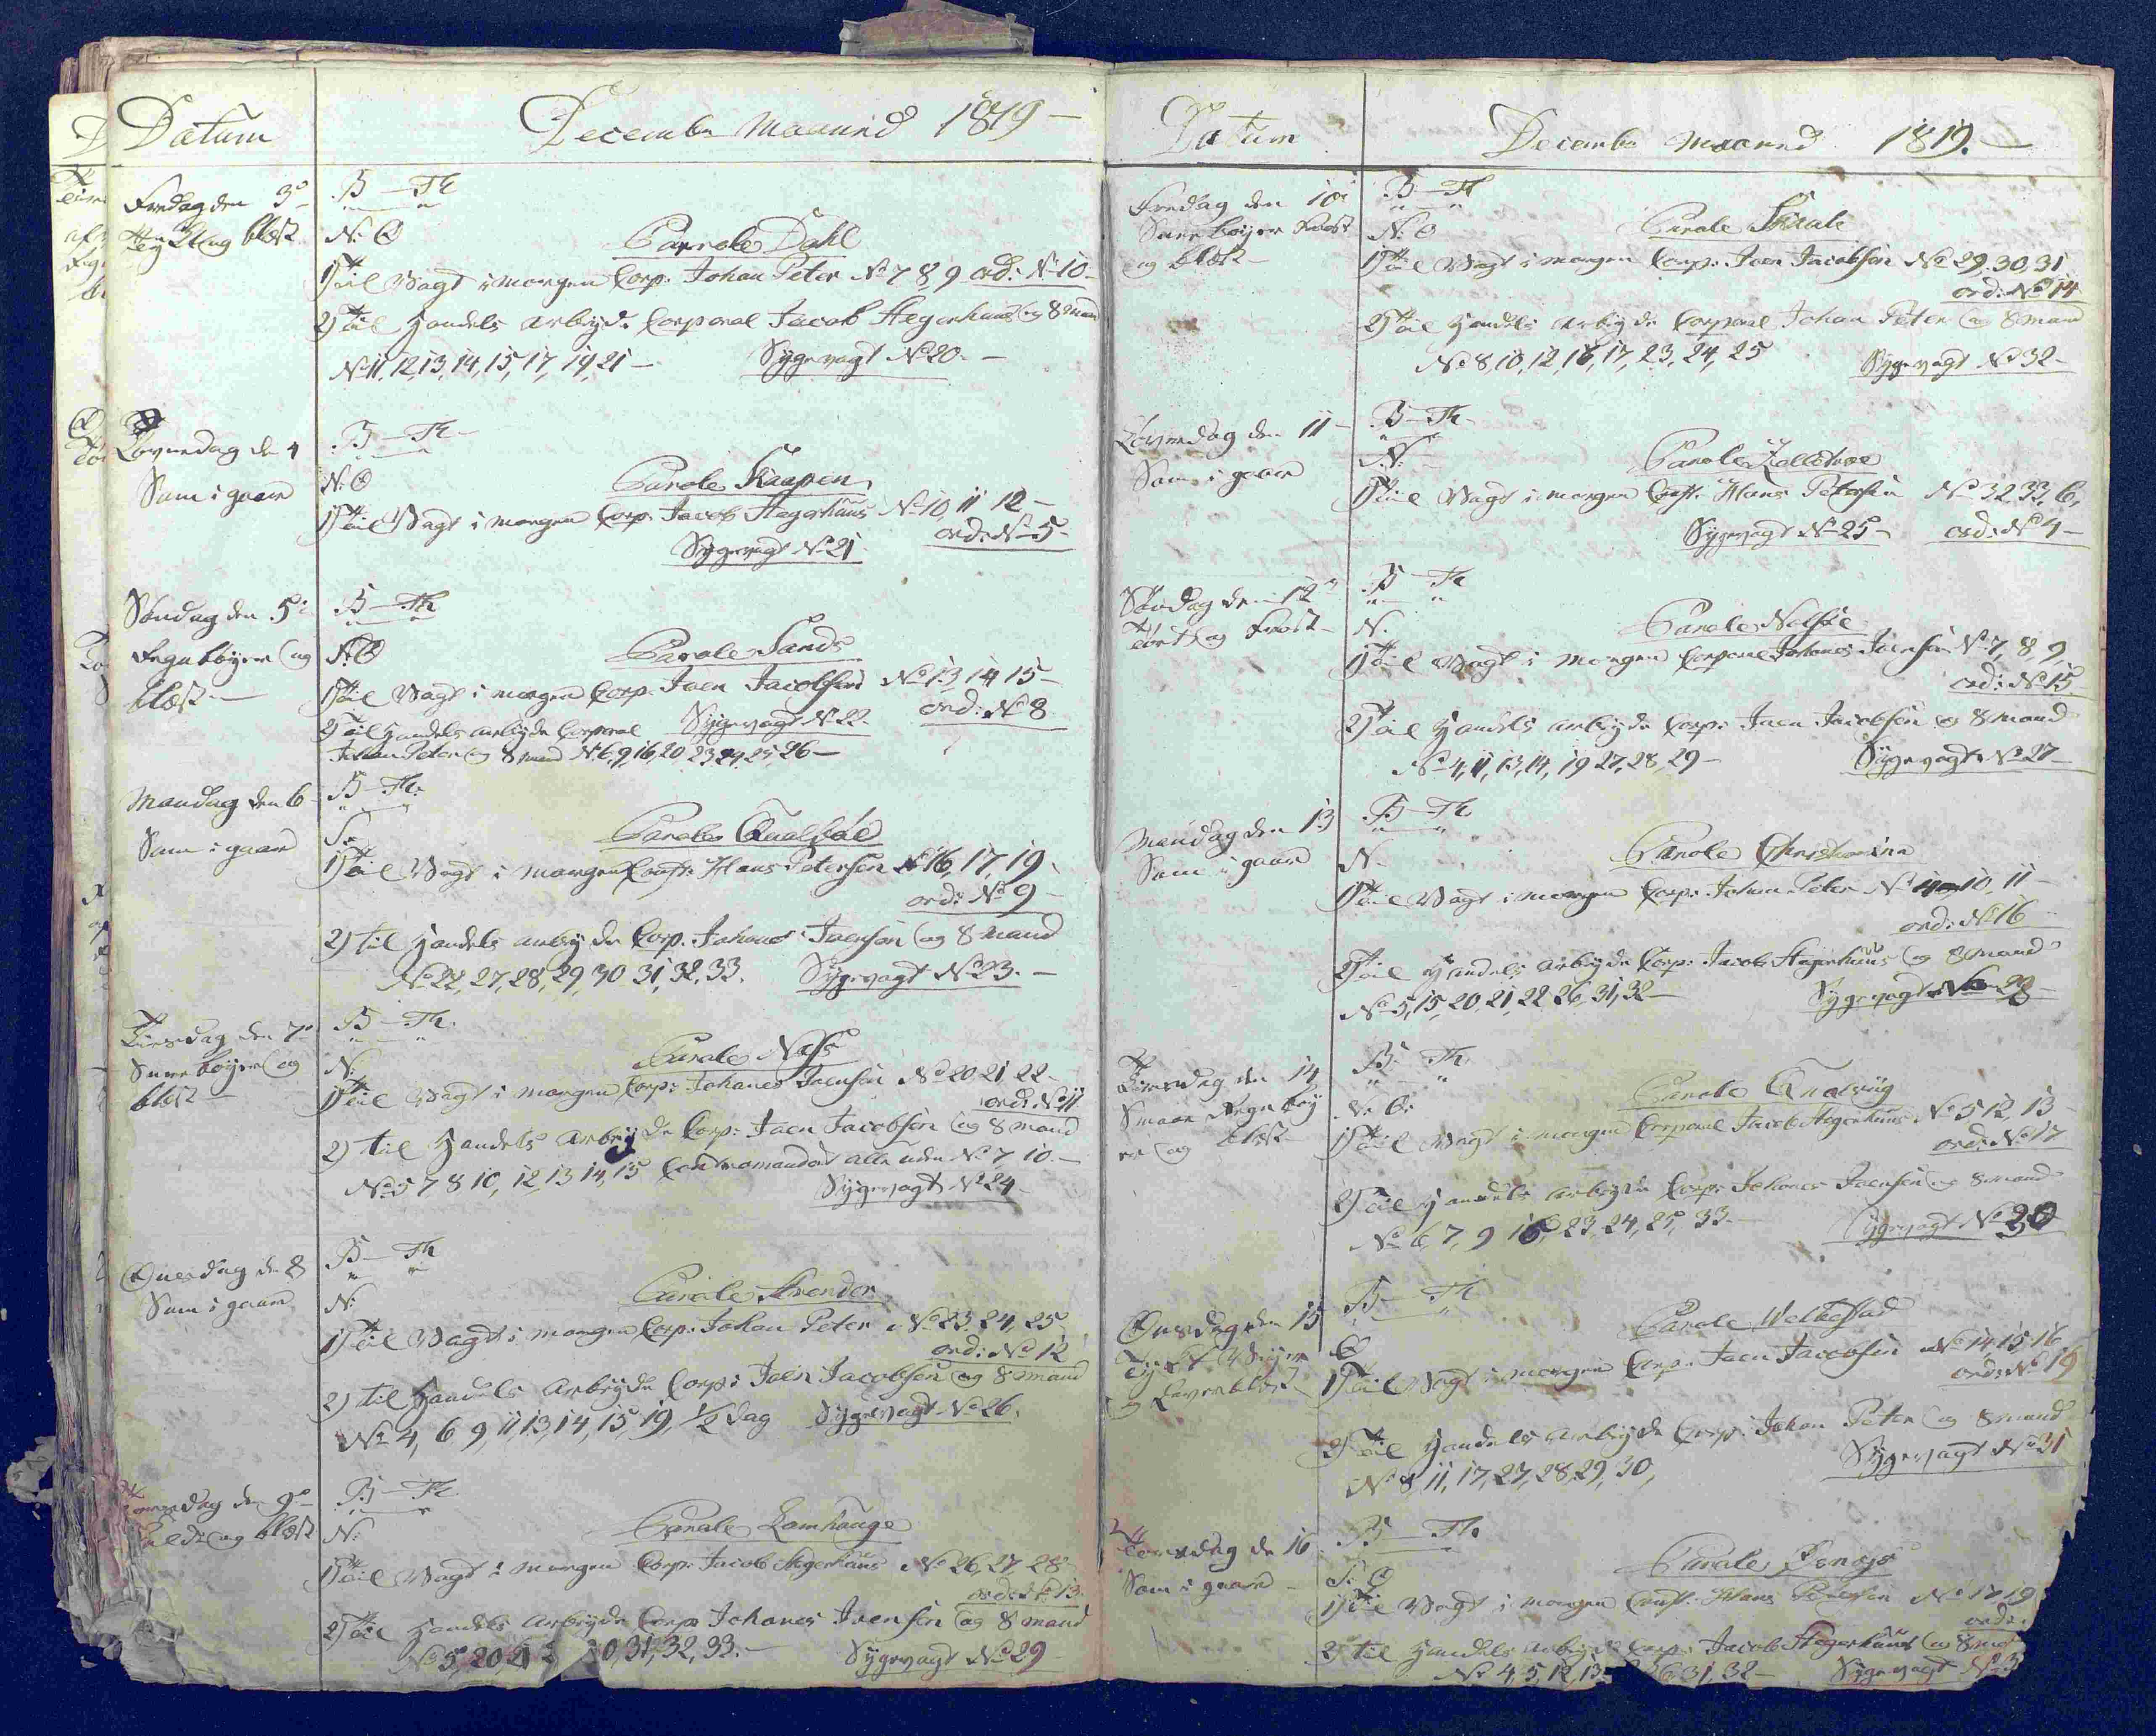 Datum
December Maaned 1819 —
Fredag den 3de
Tyk Kl og blæst
B — Th
N: O
Parole Dahl
1) Til Vagt i morgen Corp: Johan Peter No 7 8 9 ord: No 10 —
2) Til Handels Arbeyde Corporal Jacob Hegerhuus og 8 mand
No 11, 12, 13, 14, 15, 17, 19, 21 — Sygevagt No 20. —
Løverdag den 4
Som i gaar
B — Th —
N: O
Parole Kaapen
1) Til Vagt i morgen Corp: Jacob Hegerhuus No 10 11 12 —
ord: No 5 —
Sygevagt No 21
Søndag den 5te
Regn bøyer og
blæst —
B — Th
N: O
Parole Sands
1) Til Vagt i morgen Corp: Joen Jacobsen No 13 14 15 —
ord: No 8
2) Til Handels Arbeyde Corporal Sygevagt No 22
Johan Peter og 8 mand No 6, 9, 16, 20 23 24, 25 26 —
Mandag den 6
Som i gaar
B — Th:
S:
Parole Qualbøe
1) Til Vagt i morgen Const: Hans Petersen No 16, 17, 19,
ord: No 9 —
2) til Handels Arbeyde Corp: Johanes Joensen og 8 mand
No 22, 27, 28, 29, 30 31, 32, 33. Sygevagt No 23. —
Tiirsdag den 7de
Snee bøyer og
blæst —
B — Th.
N:
Parole Næs
1) Til Vagt i morgen Corp: Johanes Joensen No 20 21 22 —
ord: No 11
2) til Handels Arbeyde Corp: Joen Jacobsen og 8 mand
No 5 7 8 10, 12, 13 14, 15 Contramanderet alle uden No 7, 10. —
Sygevagt No 24 —
Onesdag den 8
Som i gaar
B — Th
N:
Parole Strender
1) Til Vagt i morgen Corp: Johan Peter No 23, 24, 25
ord: No 12
2) til Handels Arbeyde Corp: Joen Jacobsen og 8 mand
No 4, 6 9, 11, 13, 14, 15, 19, ½ dag Sygevagt No 26.
dag den 9de
og blæst
B — Th
N:
Parole Lamhauge
1) Til Vagt i morgen Corp: Jacob Hegerhuus No 26, 27 28
ord: No 13.
2) Til Handels Arbeyde Corp Johanes Joensen og 8 mand
No 5, 20, 0, 31, 32, 33. — Sygevagt No 29
Datum
December Maaned 1819. —
Fredag den 10de
Snee bøyer Frost
og blæst —
B — Th
N: O
Parole Skaale
1) Til Vagt i morgen Corp: Joen Jacobsen No 29. 30, 31
ord: No 14
2) Til Handels Arbeyde Corporal Johan Peter og 8 mand
No 8, 10, 12, 16, 17, 23, 24, 25 Sygevagt No 32 —
Løverdag den 11 —
Som i gaar
B — Th —
N:
Parole Zelletræe
1) Til Vagt i morgen Const: Hans Petersen No 32, 33, 6,
Sygevagt No 25 — ord: No 4 —
Søndag den 12te
Tørt og Frost —
B — Th
N.
Parole Nolsøe
1) Til Vagt i morgen Corporal Johanes Joensen No 7, 8, 9,
ord: No 15
2) Til Handels Arbeyde Corp: Joen Jacobsen og 8 mand
No 4, 11, 13, 14, 19 27, 28, 29 — Sygevagt No 27
Mandag den 13
Som i gaar
B — Th
N —
Parole
1) Til Vagt i morgen Corp: Johan Peter No 10, 11 —
ord: No 16
2) Til Handels Arbeyde Corp: Jacob Hegerhuus og 8 mand
No 5, 15, 20, 21, 22 26, 31, 32 — Sygevagt No
Tiirsdag den 14
Smaae Regn bøy
er og blæst
B — Th.
N: O:
Parole Qualviig
1) Til Vagt i morgen Corporal Jacob Hegerhuus No 5 12, 13 —
ord: No 17
2) Til Handels Arbeyde Corp: Johanes Joensen og 8 mand
No 6, 7, 9 16, 23, 24, 25, 33. — Sygevagt No 30
Onsdag den 15
B — Th
O
Parole Welbestad
1) Til Vagt i morgen Corp: Joen Jacobsen No 14, 15, 16
ord: No 19
2) Til Handels Arbeyde Corp: Johan Peter og 8 mand
No 8, 11, 17, 27, 28, 29, 30, Sygevagt No 31
Torsdag den 16
Som i gaar —
B — Th.
S: O
Parole
1) Til Vagt i morgen Const: Hans Petersen No 17 19
ord:
2) til Handels Arbeyde Corp: Jacob Hegerhuus og 8
No 4, 5, 12, 13 31, 32 — Sygevagt No 3